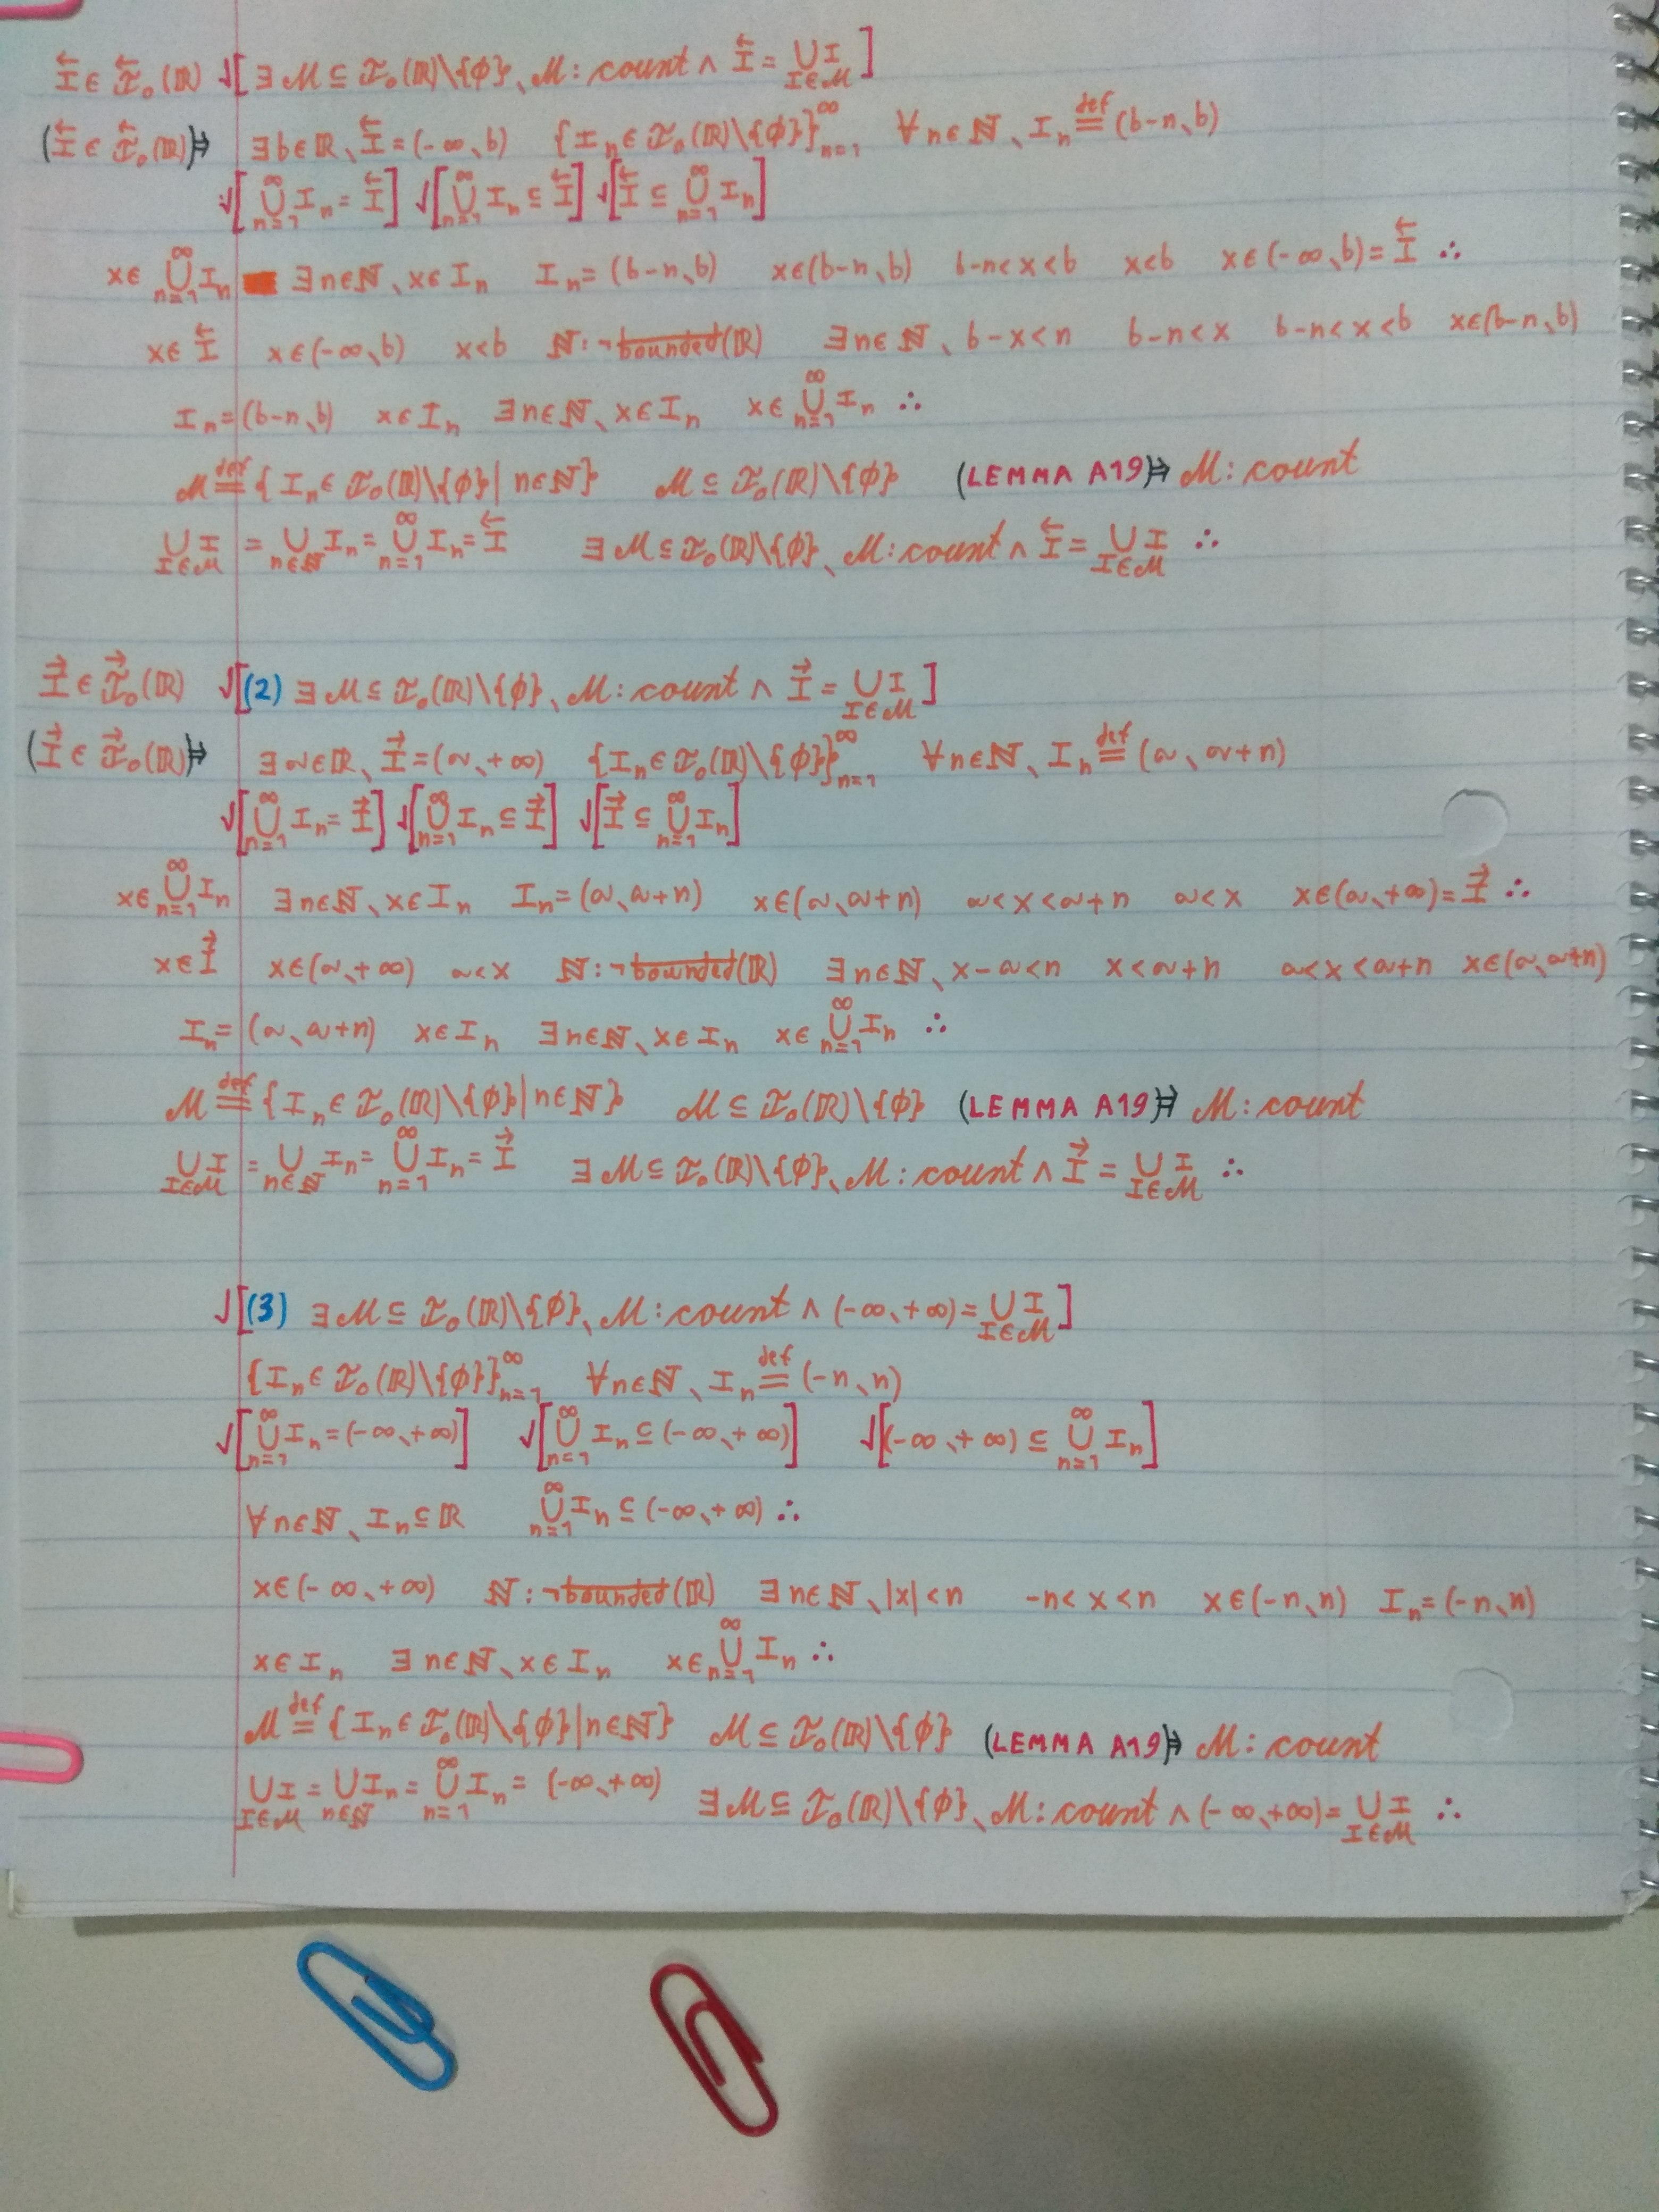 I⃖ ∈ ℐ⃖ₒ(ℝ) √[∃ℳ ⊆ ℐₒ(ℝ)\{ϕ}、ℳ: count ∧ I⃖ = ∪_{I∈ℳ} I]
(I⃖ ∈ ℐ⃖ₒ(ℝ))⊨ ∃b∈ℝ、I⃖ = (-∞、b) {Iₙ ∈ ℐₒ(ℝ)\{ϕ}}_{n=1}^∞ ∀n∈ℕ、Iₙ ≝ (b-n、b)
√[∪_{n=1}^∞ Iₙ = I⃖] √[∪_{n=1}^∞ Iₙ ⊆ I⃖] √[I⃖ ⊆ ∪_{n=1}^∞ Iₙ]
x∈ ∪_{n=1}^∞ Iₙ ∃n∈ℕ、x∈Iₙ Iₙ = (b-n、b) x∈(b-n、b) b-n<x<b x<b x∈(-∞、b) = I⃖ ∴
x∈I⃖ x∈(-∞、b) x<b ℕ: ¬b̅o̅u̅n̅d̅e̅d̅(ℝ) ∃n∈ℕ、b-x<n b-n<x b-n<x<b x∈(b-n、b)
Iₙ = (b-n、b) x∈Iₙ ∃n∈ℕ、x∈Iₙ x∈ ∪_{n=1}^∞ Iₙ ∴
ℳ ≝ {Iₙ ∈ ℐₒ(ℝ)\{ϕ} | n∈ℕ} ℳ ⊆ ℐₒ(ℝ)\{ϕ} (LEMMA A19)⊨ ℳ: count
∪_{I∈ℳ} I = ∪_{n∈ℕ} Iₙ = ∪_{n=1}^∞ Iₙ = I⃖ ∃ℳ ⊆ ℐₒ(ℝ)\{ϕ}、ℳ: count ∧ I⃖ = ∪_{I∈ℳ} I ∴
I⃗ ∈ ℐ⃗ₒ(ℝ) √[(2) ∃ℳ ⊆ ℐₒ(ℝ)\{ϕ}、ℳ: count ∧ I⃗ = ∪_{I∈ℳ} I]
(I⃗ ∈ ℐ⃗ₒ(ℝ))⊨ ∃a∈ℝ、I⃗ = (a、+∞) {Iₙ ∈ ℐₒ(ℝ)\{ϕ}}_{n=1}^∞ ∀n∈ℕ、Iₙ ≝ (a、a+n)
√[∪_{n=1}^∞ Iₙ = I⃗] √[∪_{n=1}^∞ Iₙ ⊆ I⃗] √[I⃗ ⊆ ∪_{n=1}^∞ Iₙ]
x∈ ∪_{n=1}^∞ Iₙ ∃n∈ℕ、x∈Iₙ Iₙ = (a、a+n) x∈(a、a+n) a<x<a+n a<x x∈(a、+∞) = I⃗ ∴
x∈I⃗ x∈(a、+∞) a<x ℕ: ¬b̅o̅u̅n̅d̅e̅d̅(ℝ) ∃n∈ℕ、x-a<n x<a+n a<x<a+n x∈(a、a+n)
Iₙ = (a、a+n) x∈Iₙ ∃n∈ℕ、x∈Iₙ x∈ ∪_{n=1}^∞ Iₙ ∴
ℳ ≝ {Iₙ ∈ ℐₒ(ℝ)\{ϕ} | n∈ℕ} ℳ ⊆ ℐₒ(ℝ)\{ϕ} (LEMMA A19)⊨ ℳ: count
∪_{I∈ℳ} I = ∪_{n∈ℕ} Iₙ = ∪_{n=1}^∞ Iₙ = I⃗ ∃ℳ ⊆ ℐₒ(ℝ)\{ϕ}、ℳ: count ∧ I⃗ = ∪_{I∈ℳ} I ∴
√[(3) ∃ℳ ⊆ ℐₒ(ℝ)\{ϕ}、ℳ: count ∧ (-∞、+∞) = ∪_{I∈ℳ} I]
{Iₙ ∈ ℐₒ(ℝ)\{ϕ}}_{n=1}^∞ ∀n∈ℕ、Iₙ ≝ (-n、n)
√[∪_{n=1}^∞ Iₙ = (-∞、+∞)] √[∪_{n=1}^∞ Iₙ ⊆ (-∞、+∞)] √[(-∞、+∞) ⊆ ∪_{n=1}^∞ Iₙ]
∀n∈ℕ、Iₙ ⊆ ℝ ∪_{n=1}^∞ Iₙ ⊆ (-∞、+∞) ∴
x∈(-∞、+∞) ℕ: ¬b̅o̅u̅n̅d̅e̅d̅(ℝ) ∃n∈ℕ、|x|<n -n<x<n x∈(-n、n) Iₙ = (-n、n)
x∈Iₙ ∃n∈ℕ、x∈Iₙ x∈ ∪_{n=1}^∞ Iₙ ∴
ℳ ≝ {Iₙ ∈ ℐₒ(ℝ)\{ϕ} | n∈ℕ} ℳ ⊆ ℐₒ(ℝ)\{ϕ} (LEMMA A19)⊨ ℳ: count
∪_{I∈ℳ} I = ∪_{n∈ℕ} Iₙ = ∪_{n=1}^∞ Iₙ = (-∞、+∞) ∃ℳ ⊆ ℐₒ(ℝ)\{ϕ}、ℳ: count ∧ (-∞、+∞) = ∪_{I∈ℳ} I ∴